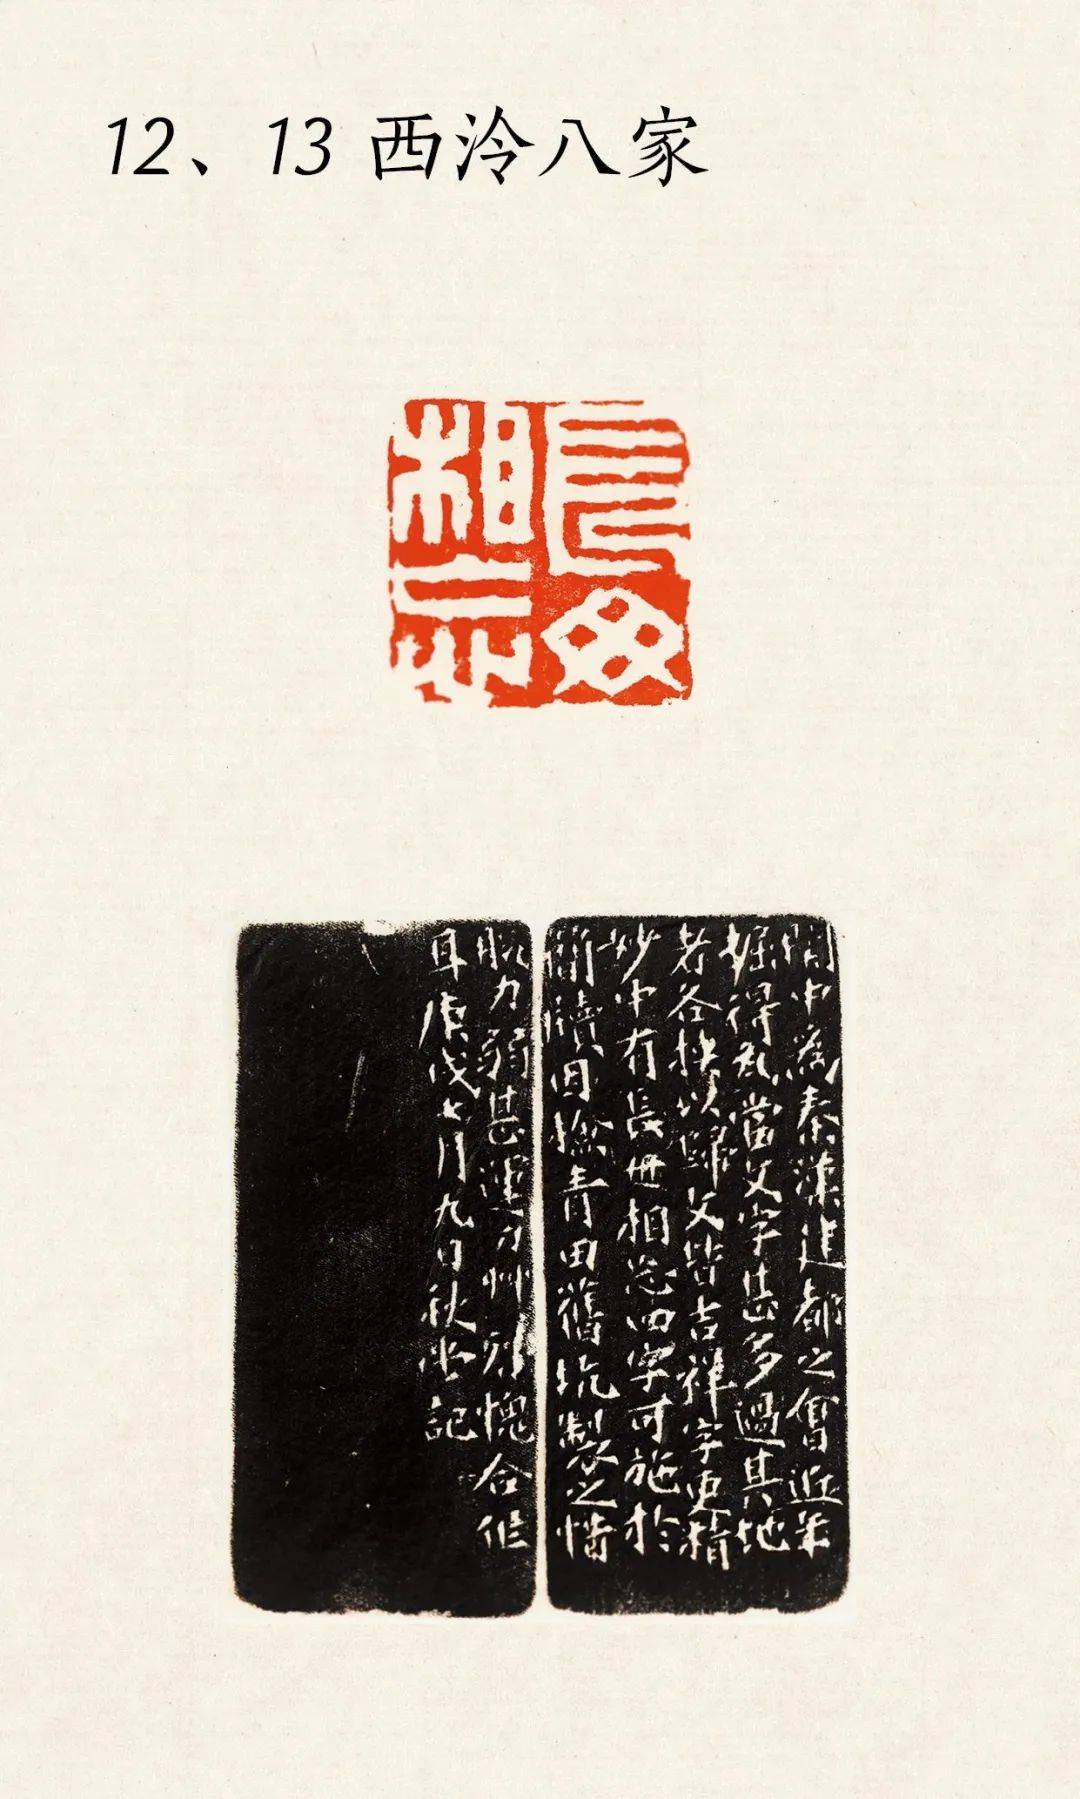 12、13 西泠八家
長毋
相忘
關中爲秦漢建都之會近来
掘得瓦當文字甚多過其地
者各抉以歸文皆吉祥字更精
妙中有長毋相忘四字可施於
簡牘因撿青田舊坑製之惜
腕力弱甚運刀艸率愧合作
耳庚戌七月九日秋堂記